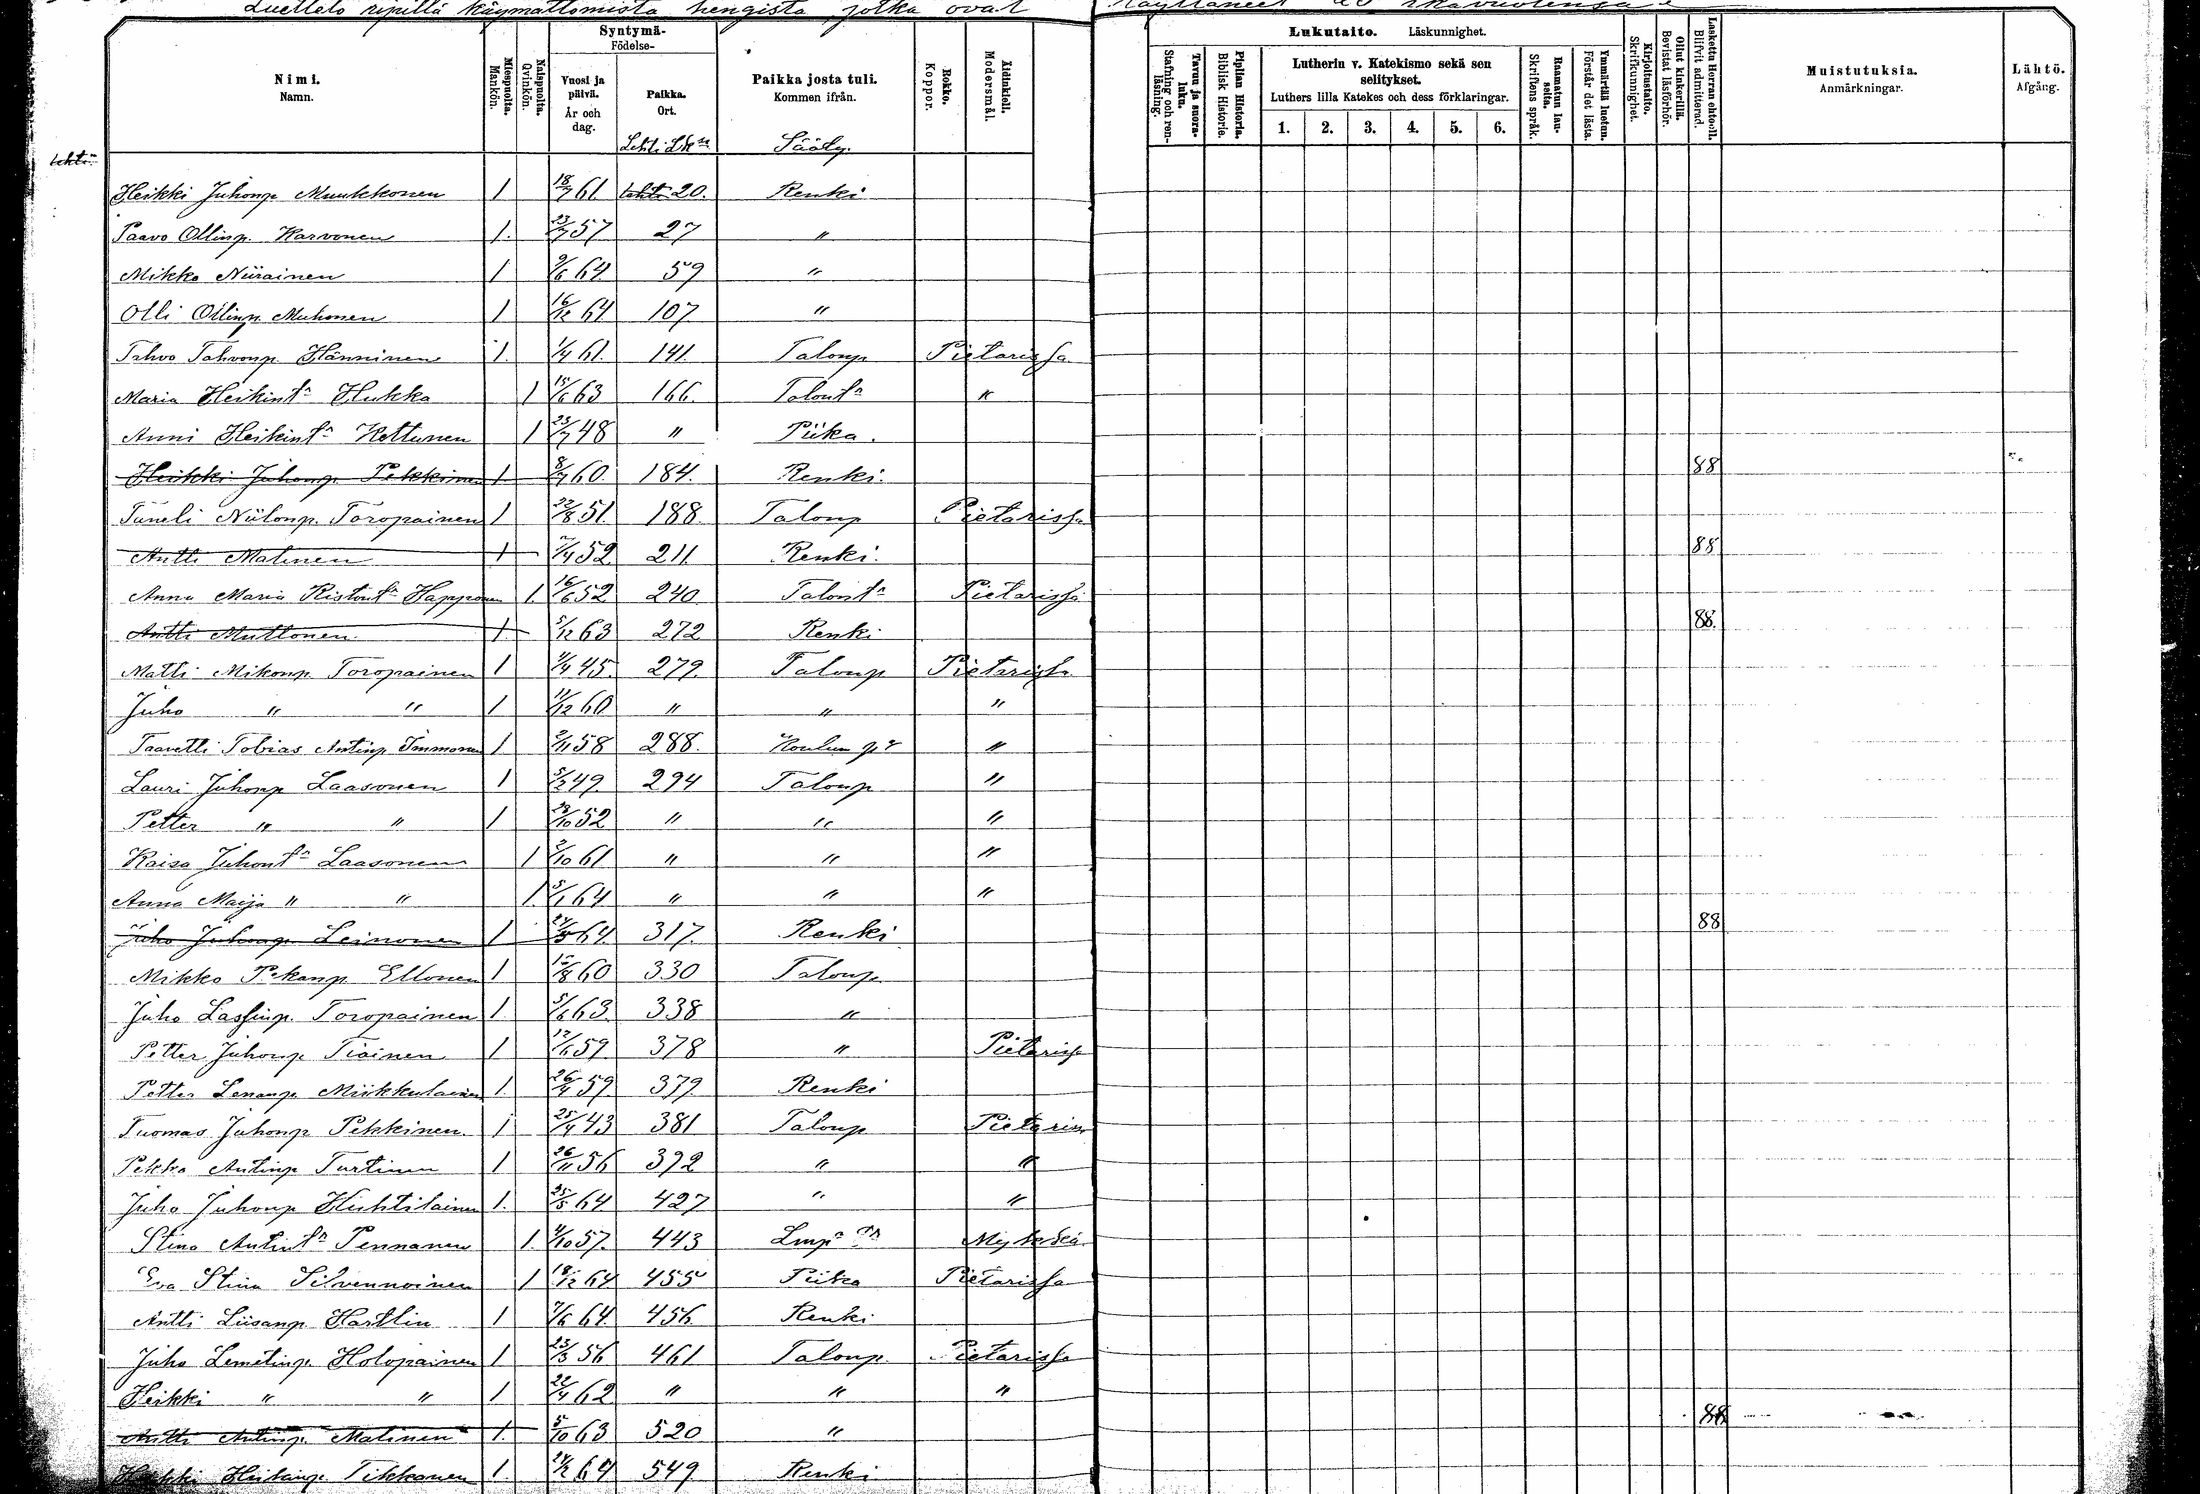 Luettelo ripillä käymättömistä hengistä jotka ovat täyttäneet 20 ikävuotensa
Nimi. Namn. Miespuolta. Mankön. Naispuolta. Qvinkön. Syntymä- Födelse- Vuosi ja päivä. År och dag. Paikka. Ort. Paikka josta tuli. Kommen ifrån. Rokko. Koppor. Äidinkieli. Modersmål. Tavuu ja suora-luku. Stafning och ren-läsning. Piplian Historia. Biblisk Historie. Lukutaito. Läskunnighet. Lutherin v. Katekismo sekä sen selitykset. Luthers lilla Katekes och dess förklaringar. 1. 2. 3. 4. 5. 6. Raamatun lau-seita. Skriftens språk. Ymmärtää luetun. Förstår det lästa. Kirjoitustaito. Skrifkunnighet. Ollut kinkerillä. Bevistat läsförhör. Laskettu Herran ehtooll. Blifvit admitterad. Muistutuksia. Anmärkningar. Lähtö. Afgång.
Lehti Säåty.
Heikki Juhonp Muukkonen 1 18/7 61 20. Renki
Paavo Ollinp. Karvonen 1. 23/7 57 27 "
Mikko Niirainen 1 9/6 64 59 "
Olli Ollinp. Muhonen 1 16/12 64 107 "
Tahvo Tahvonp Hänninen 1. 1/4 61. 141. Talonp Pietarissa
Maria Heikint^r Hukka 1 15/6 63 166. Talont^r "
Anni Heikint^r Kettunen 1 25/7 48 " Piika.
Heikki Juhonp Pekkinen 1 8/7 60. 184. Renki. 88
Taneli Niilonp. Toropainen 1 22/8 51. 188 Talonp Pietarissa
Antti Matinen 1 7/4 52. 211. Renki. 88
Anna Maria Ristont^r Happonen 1. 16/6 52 240. Talont^r Pietarissa
Antti Muttonen 1 5/12 63 272 Renki 88.
Matti Mikonp. Toropainen 1 1/4 45. 279. Talonp Pietarissa
Juho " " 1 11/12 60 " " "
Taavetti Tobias Antinp Immonen 1. 2/11 58 288. "
Lauri Juhonp Laasonen 1 5/2 49 294 Talonp "
Petter " " 1 28/10 52 " " "
Kaisa Juhont^r Laasonen 1 2/10 61 " " "
Anna Maija " " 1. 5/1 64 " " "
Juho Juhonp Leinonen 1 24/5 64. 317. Renki 88
Mikko Pekanp Ellonen 1 15/8 60 330 Talonp
Juho Lassinp. Toropainen 1. 5/6 63. 338 "
Petter Juhonp Tiainen 1 17/6 59. 378 " Pietarissa
Petter Lenanp. Miikkulainen 1. 26/4 59. 379. Renki
Tuomas Juhonp Pekkinen. 1 25/4 43 381 Talonp Pietarissa
Pekka Antinp Turtinen 1 26/11 56 392 " "
Juho Juhonp Huhtilainen 1. 25/5 64 427 " "
Stina Antint^r Pennanen 1. 4/10 57. 443
Eva Stina Silvennoinen 1 18/12 64 455 Piika Pietarissa
Antti Liisanp Hartlin 1 7/6 64. 456. Renki
Juho Lemetinp. Holopainen 1 23/3 56 461 Talonp. Pietarissa
Heikki " " 1 22/4 62 " " "
Antti Antinp. Matinen 1. 5/10 63 520 " 88
Heikki Heikinp Tikkanen 1. 24/2 64 549 Renki